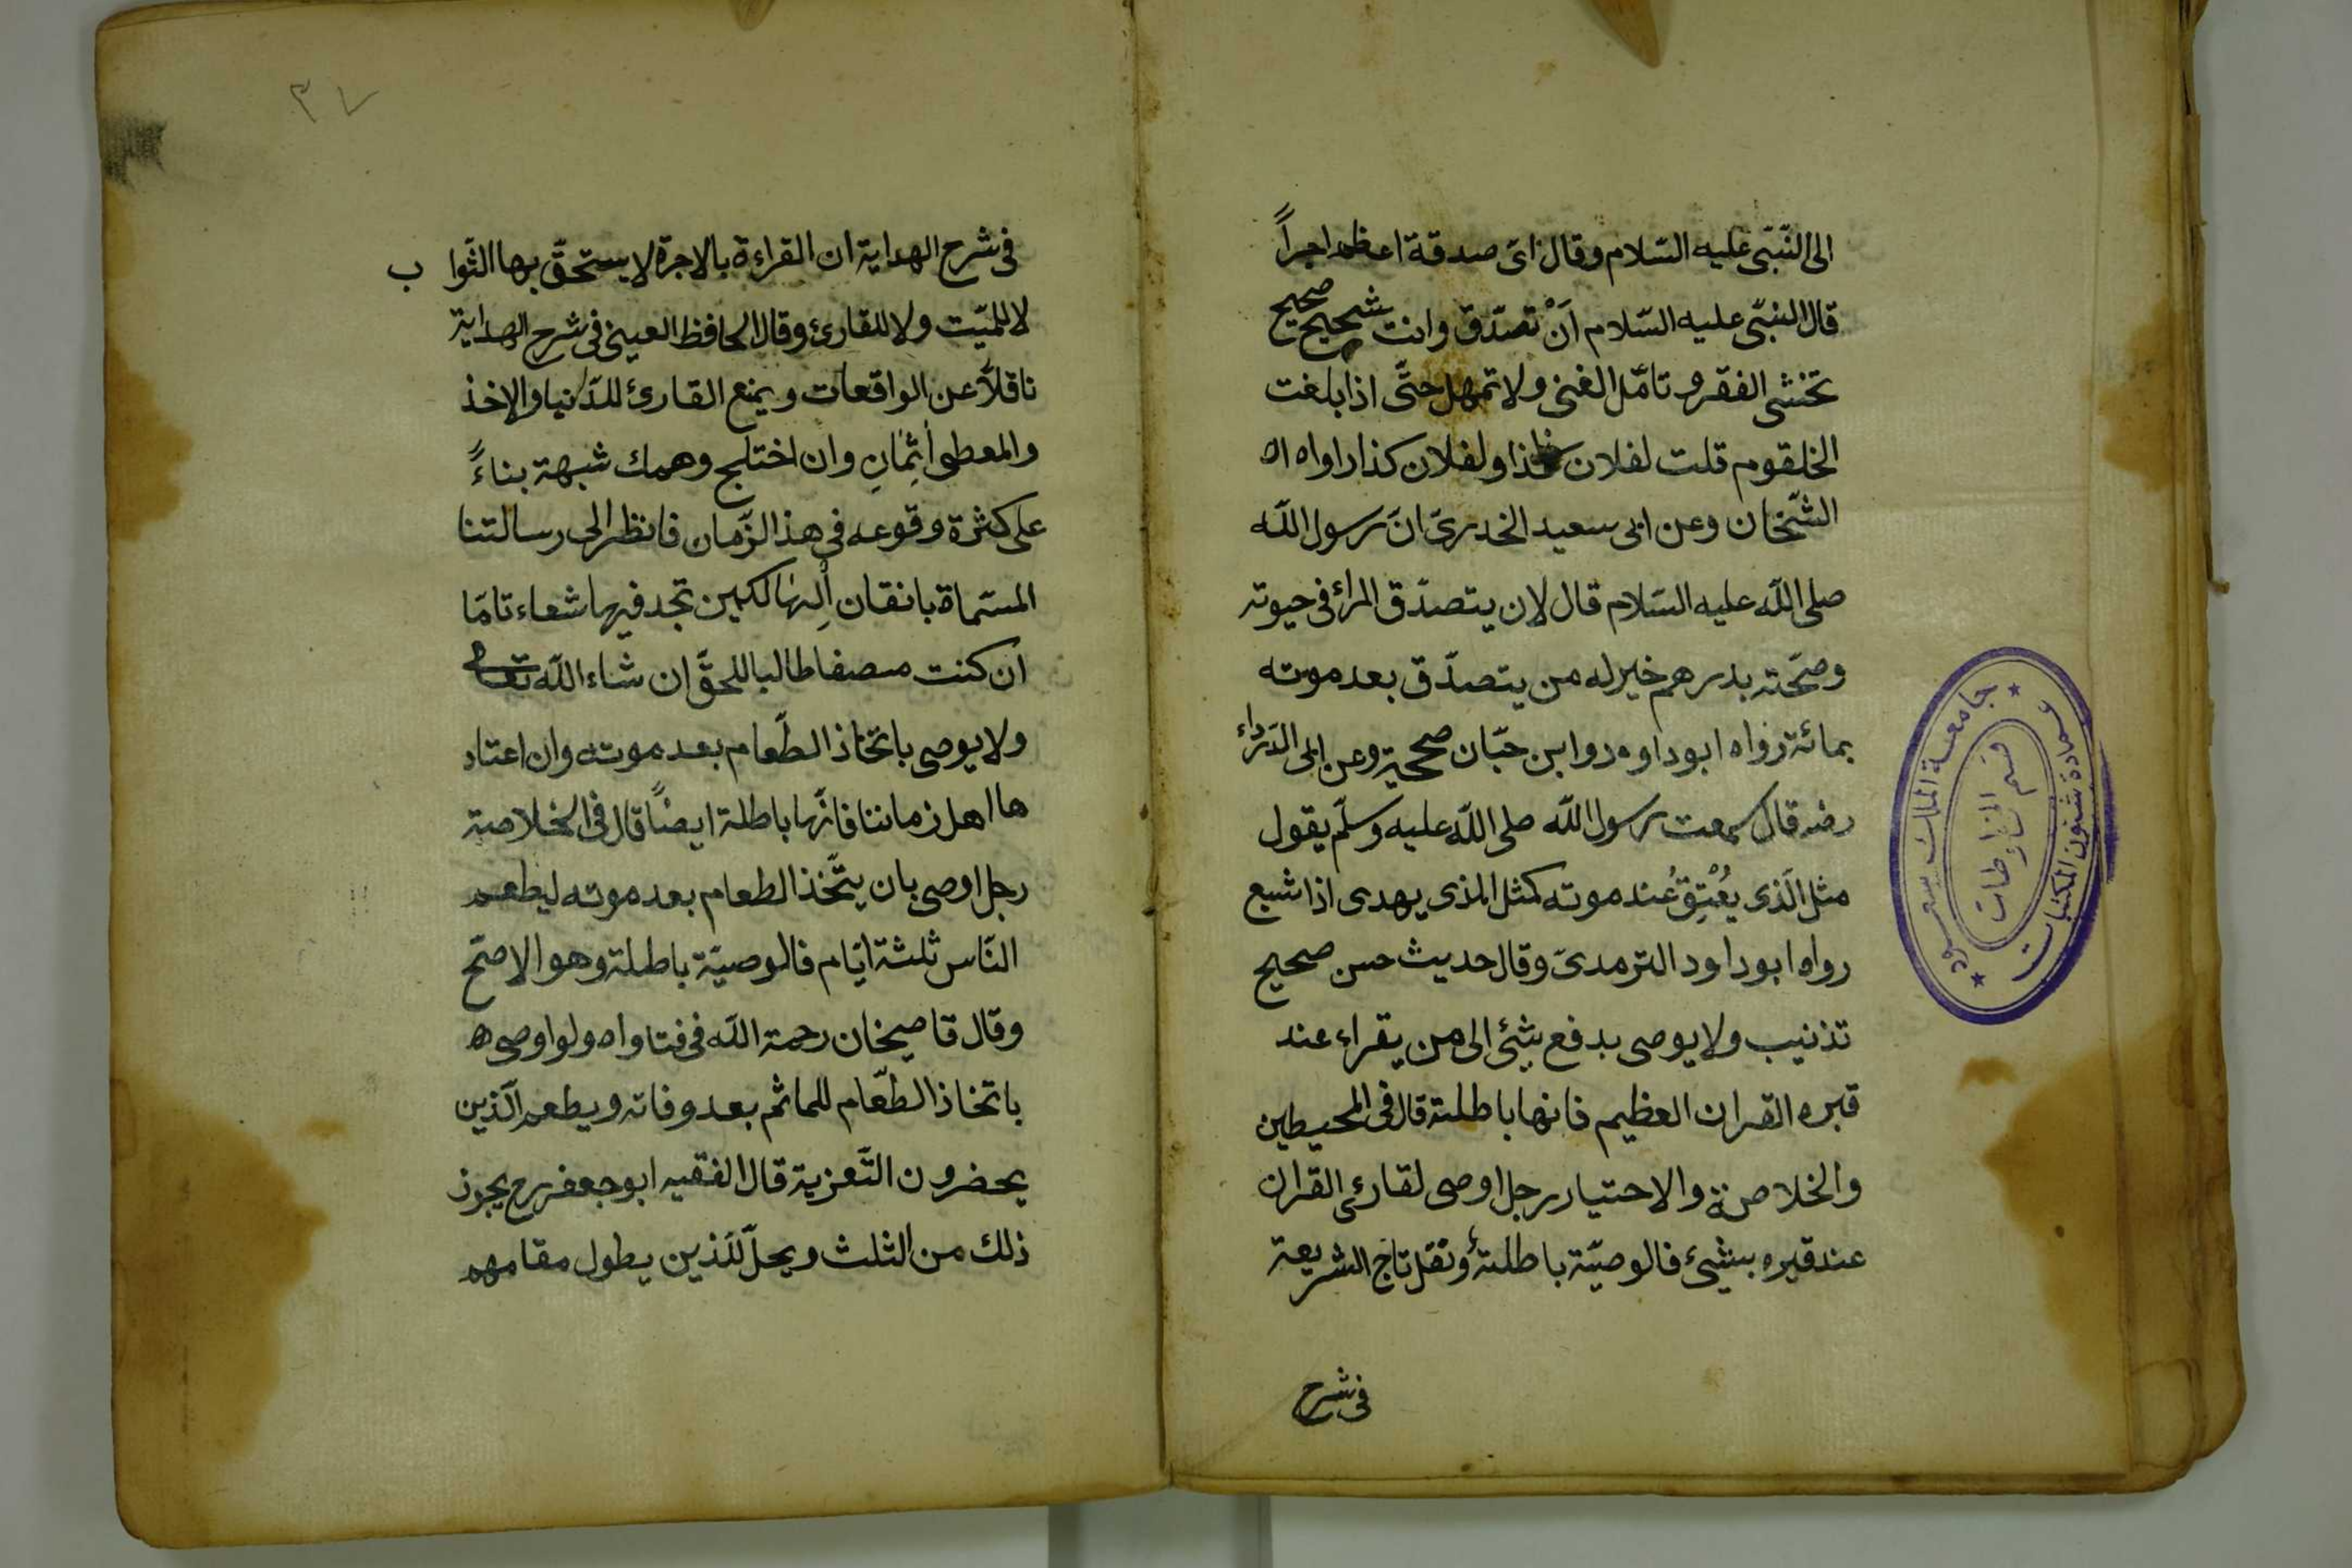 الى النّبّى عليه السّلام وقال اىّ صدقة اعظم اجراً
قال النبّى عليه السّلام اَنْ تصدّق وانت شحيح صحيح
تخشى الفقر و تامّل الغنى ولا تمهل حتّى اذا بلغت
الخلقوم قلت لفلان كذا ولفلان كذا راواه اه
الشّخان وعن ابى سعيد الخدرىّ انّ رسول اللّه
صلى اللّه عليه السّلام قال لان يتصدّق المرائ فى حيوته
وصحّته بدرهم خير له من يتصدّق بعد موته
بمائة رواه ابو داوه د وابن حبّان صححيه وعن ابى الدّرداء
رضه قال سمعت رسول اللّه صلى اللّه عليه وسلّم يقول
مثل الّذى يُعْتِقُ عند موته كمثل المذى يهدى اذا شبع
رواه ابو داود الترمدىّ وقال حديث حسن صحيح
تذنيب ولا يوصى بدفع شئ الى من يقراء عند
قبره القران العظيم فانها باطلة قال فى المحيطين
والخلاصة والاحتيار رجل اوصى لقارئ القران
عند قبره بشئ فالوصيّة باطلة ونقل تاج الشريعة
فى شرح
٣٧
فى شرح الهداية ان القراءة بالاجرة لا يستحقّ بها الثّوا ب
لا للميّت ولا للقارئ وقال الحافظ العينى فى شرح الهداية
ناقلاً عن الواقعات ويمنع القارئ للدّنيا والاخذ
والمعطى اٰثِمَانِ وان اختلج وهمك شبهة بناءً
على كثرة وقوعه فى هذ الزّمان فانظر الى رسالتنا
المسّماة بانقان الهالكين تجد فيها شعاء تامّا
ان كنت مصفا طالبا للحقّ ان شاء اللّه تعالى
ولا يوصى باتخاذ الطّعام بعد موته وان اعتاد
ها اهل زماننا فانّها باطلة ايضاً قال فى الخلاصة
رجل اوصى بان يتّخذ الطعام بعد موته ليطعم
النّاس ثلثة ايّام فالوصيّة باطلة وهو الاصّح
وقال قاصيخان رحمة اللّه فى فتاواه ولو اوصى ه
باتخاذ الطّعام للماثم بعد وفاته ويطعم الّذين
يحضرون التّعزية قال الفقيه ابو جعفر رح يجوز
ذلك من الثلث ويحلّ للّذين يطول مقامهم
جامعة الملك سعود
عمادة شئون المكتبات
قسم المخطوطات